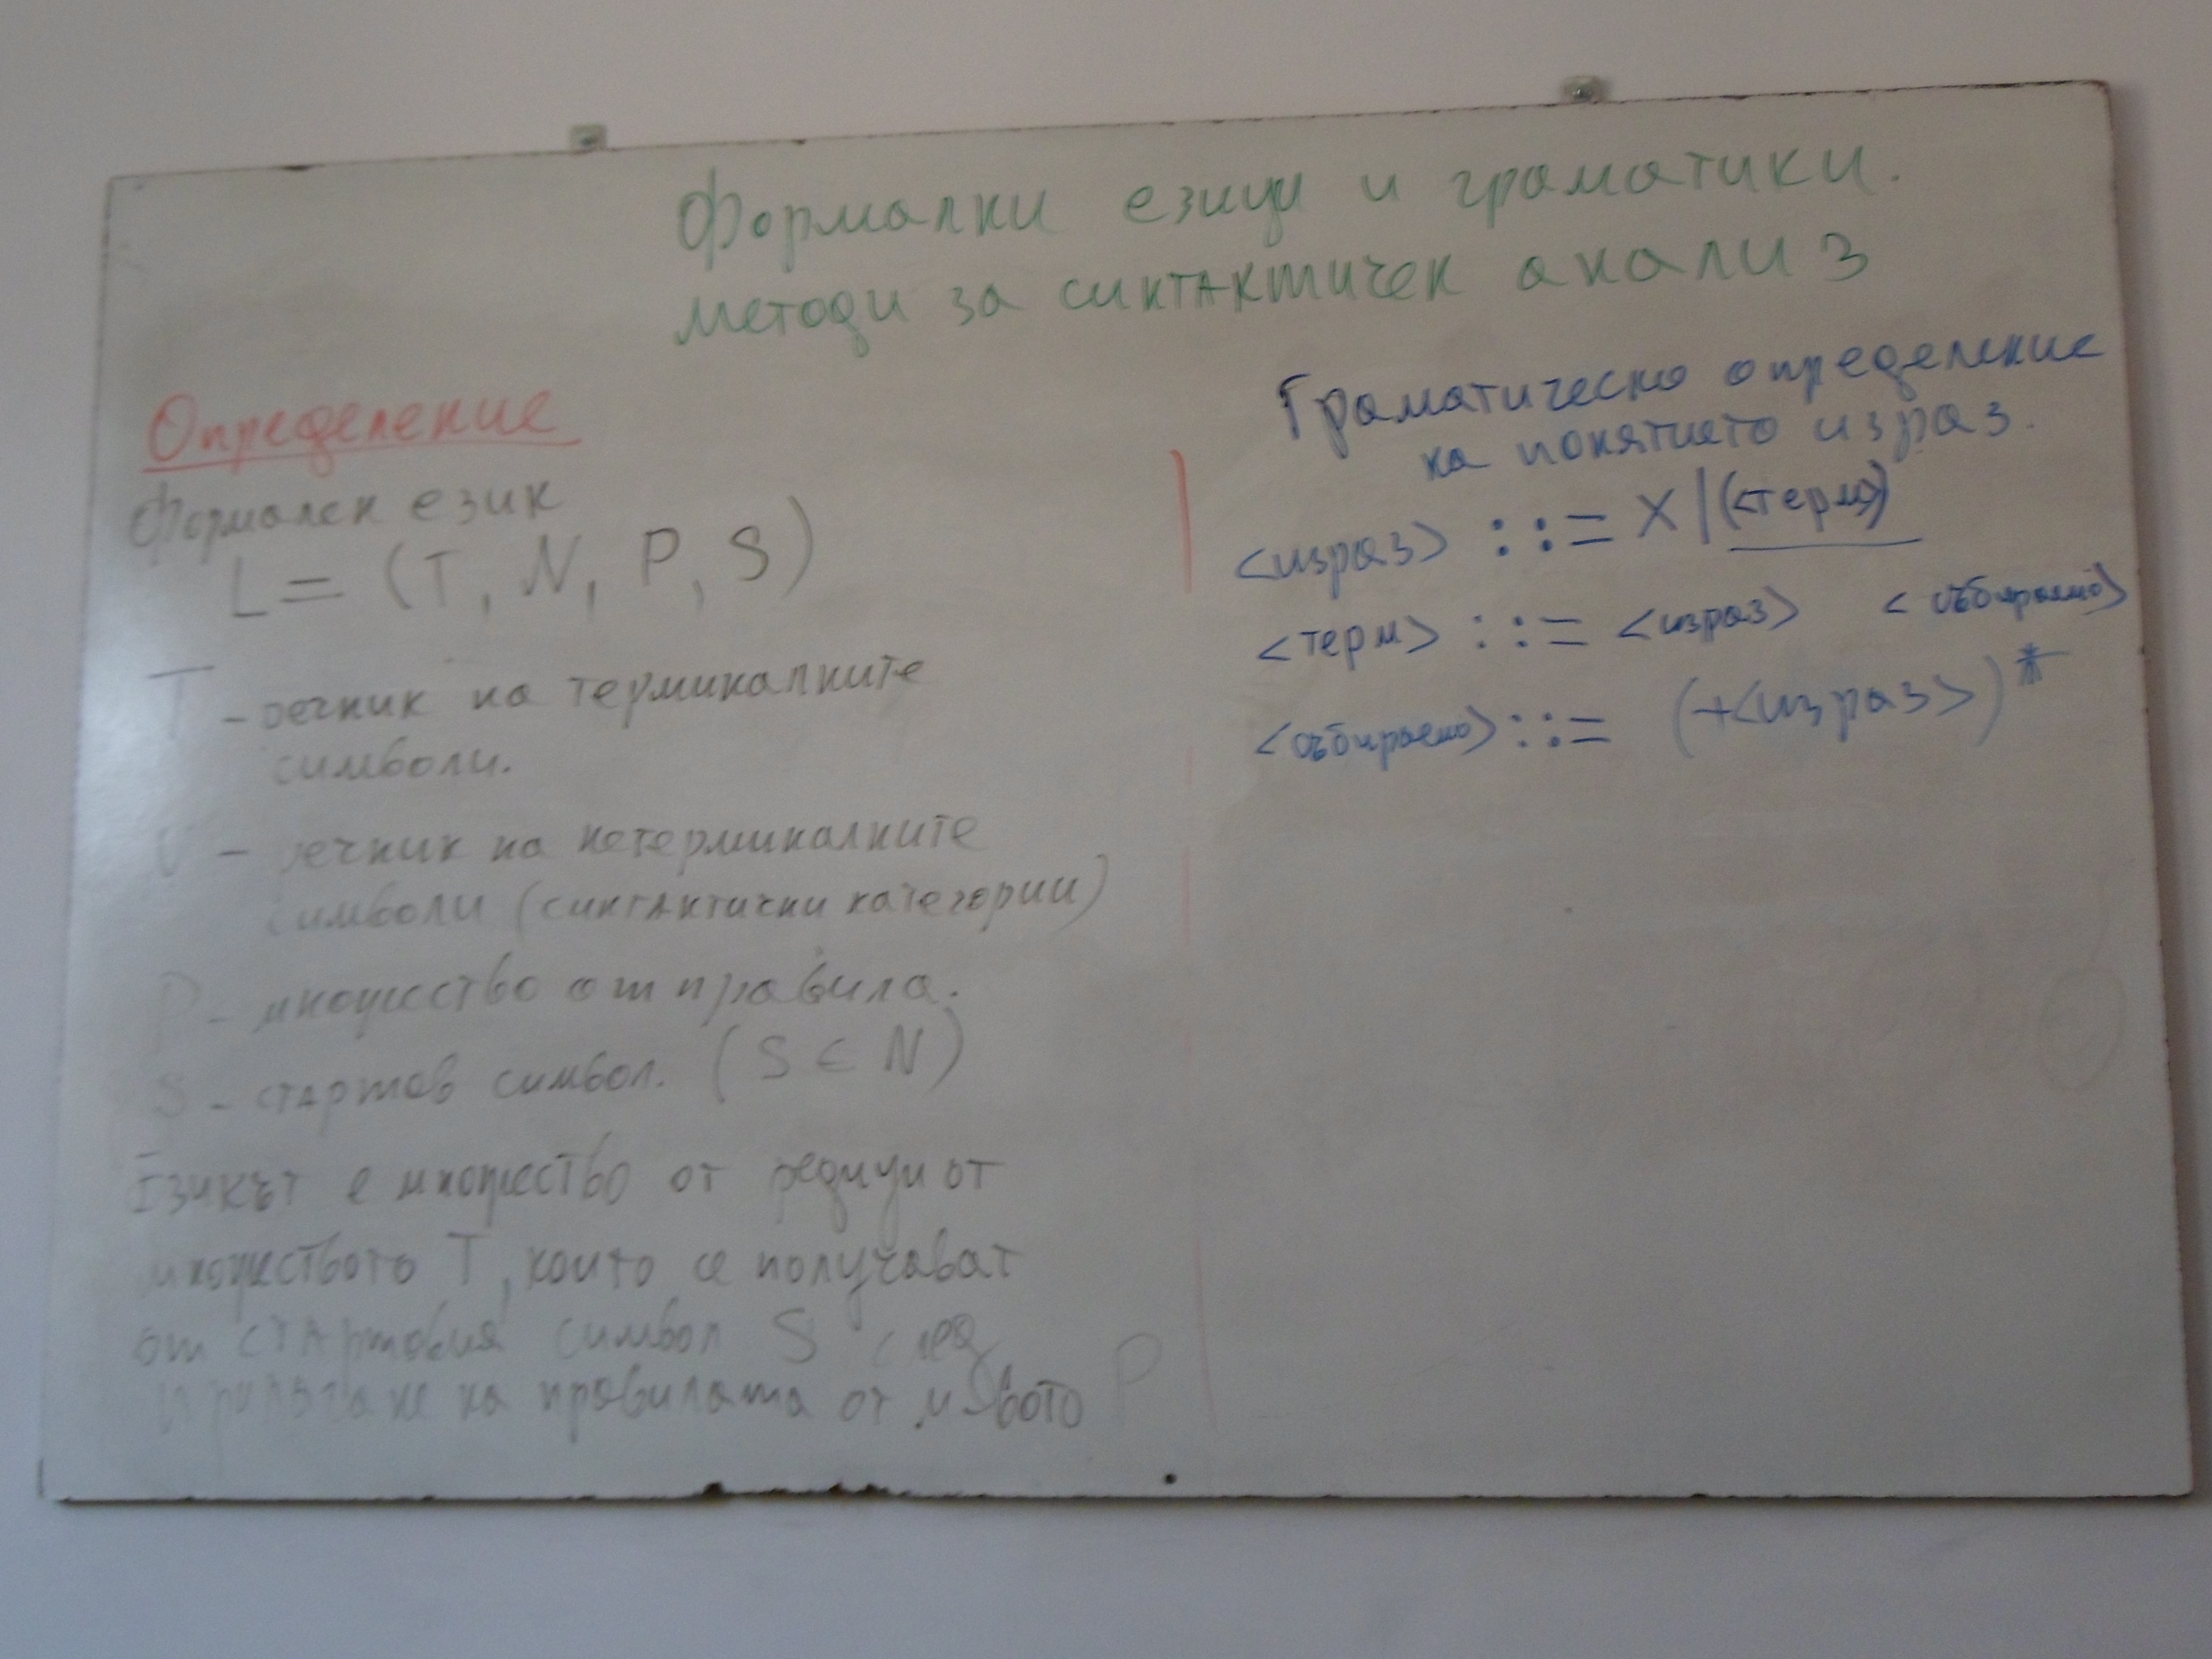 Формални езици и граматики.
Методи за синтактичен анализ
Определение
Формален език
L = (T, N, P, S)
T - речник на терминалните
символи.
N - речник на нетерминалните
символи (синтактични категории)
P - множество от правила.
S - стартов символ. (S ∈ N)
Езикът е множество от редици от
множеството T, които се получават
от стартовия символ S след
прилагане на правилата от м-вото P
Граматическо определение
на понятието израз.
<израз> ::= X | (<терм>)
<терм> ::= <израз> <събираемо>
<събираемо> ::= (+<израз>)*